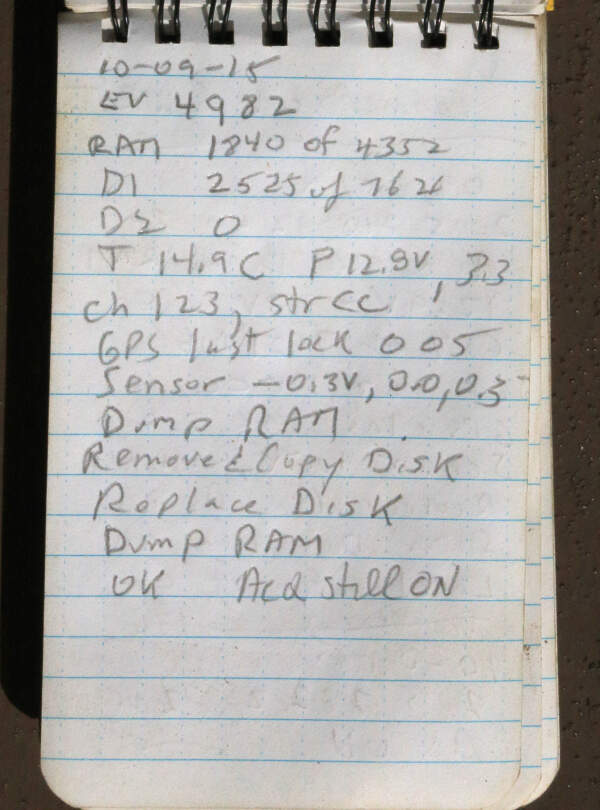 10-09-15
EV 4982
RAM 1840 of 4352
D1 2525 of 7624
D2 0
T 14.9C P 12.9V, 3.3
ch 123, str CC
GPS last lock 0 05
Sensor -0.3V, 0.0, 0.3
Dump RAM
Remove & Copy Disk
Replace Disk
Dump RAM
OK Acq still ON